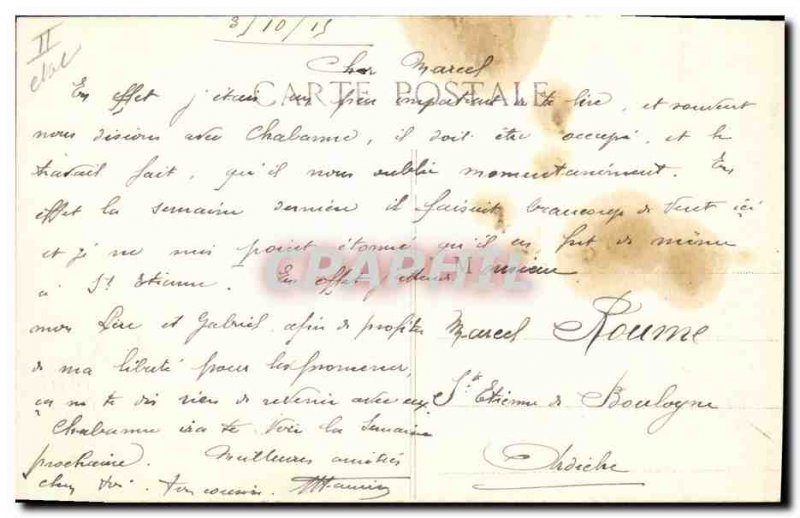 3/10/15
II
Cher Marcel
CARTE POSTALE
En effet j'étais un peu impatient de te lire, et souvent
nous disions avec Chabanne, il doit être occupé, et le
travail fait, qu'il nous oublie momentanément. En
effet la semaine dernière il faisait beaucoup de vent ici
et je ne suis point étonné qu'il en fut de même
à St Etienne. En effet j'attends
Monsieur
CPAPHIL
mon père et Gabriel, afin de profiter
Marcel Roume
de ma liberté pour les promener,
ça ne te dis rien de revenir avec eux
St Etienne de Boulogne
Chabanne ira te voir la semaine
prochaine. Meilleures amitiés
Ardèche
chez toi. ton cousin